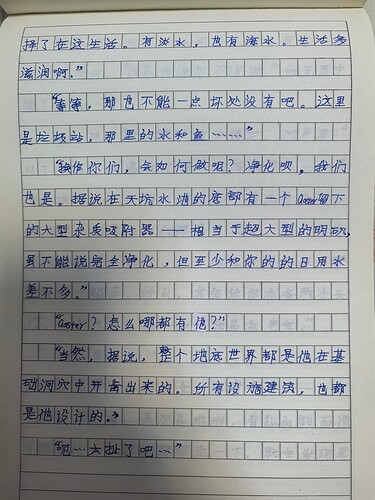 择了在这生活。有淡水，也有海水。生活多
滋润啊。”
“等等，那也不能一点坏处没有吧。这里
是垃圾站，那里的水和鱼……”
“换作你们，会如何做呢？净化呗，我们
也是。据说在天坑水滩的底部有一个Caster留下
的大型杂质吸附器——相当于超大型的明矾，
虽不能说完全净化，但至少和你的的日用水
差不多。”
“Caster？怎么哪都有他？”
“当然，据说，整个地底世界都是他在基
础洞穴中开凿出来的。所有设施建筑，也都
是他设计的。”
“呃…太扯了吧…”